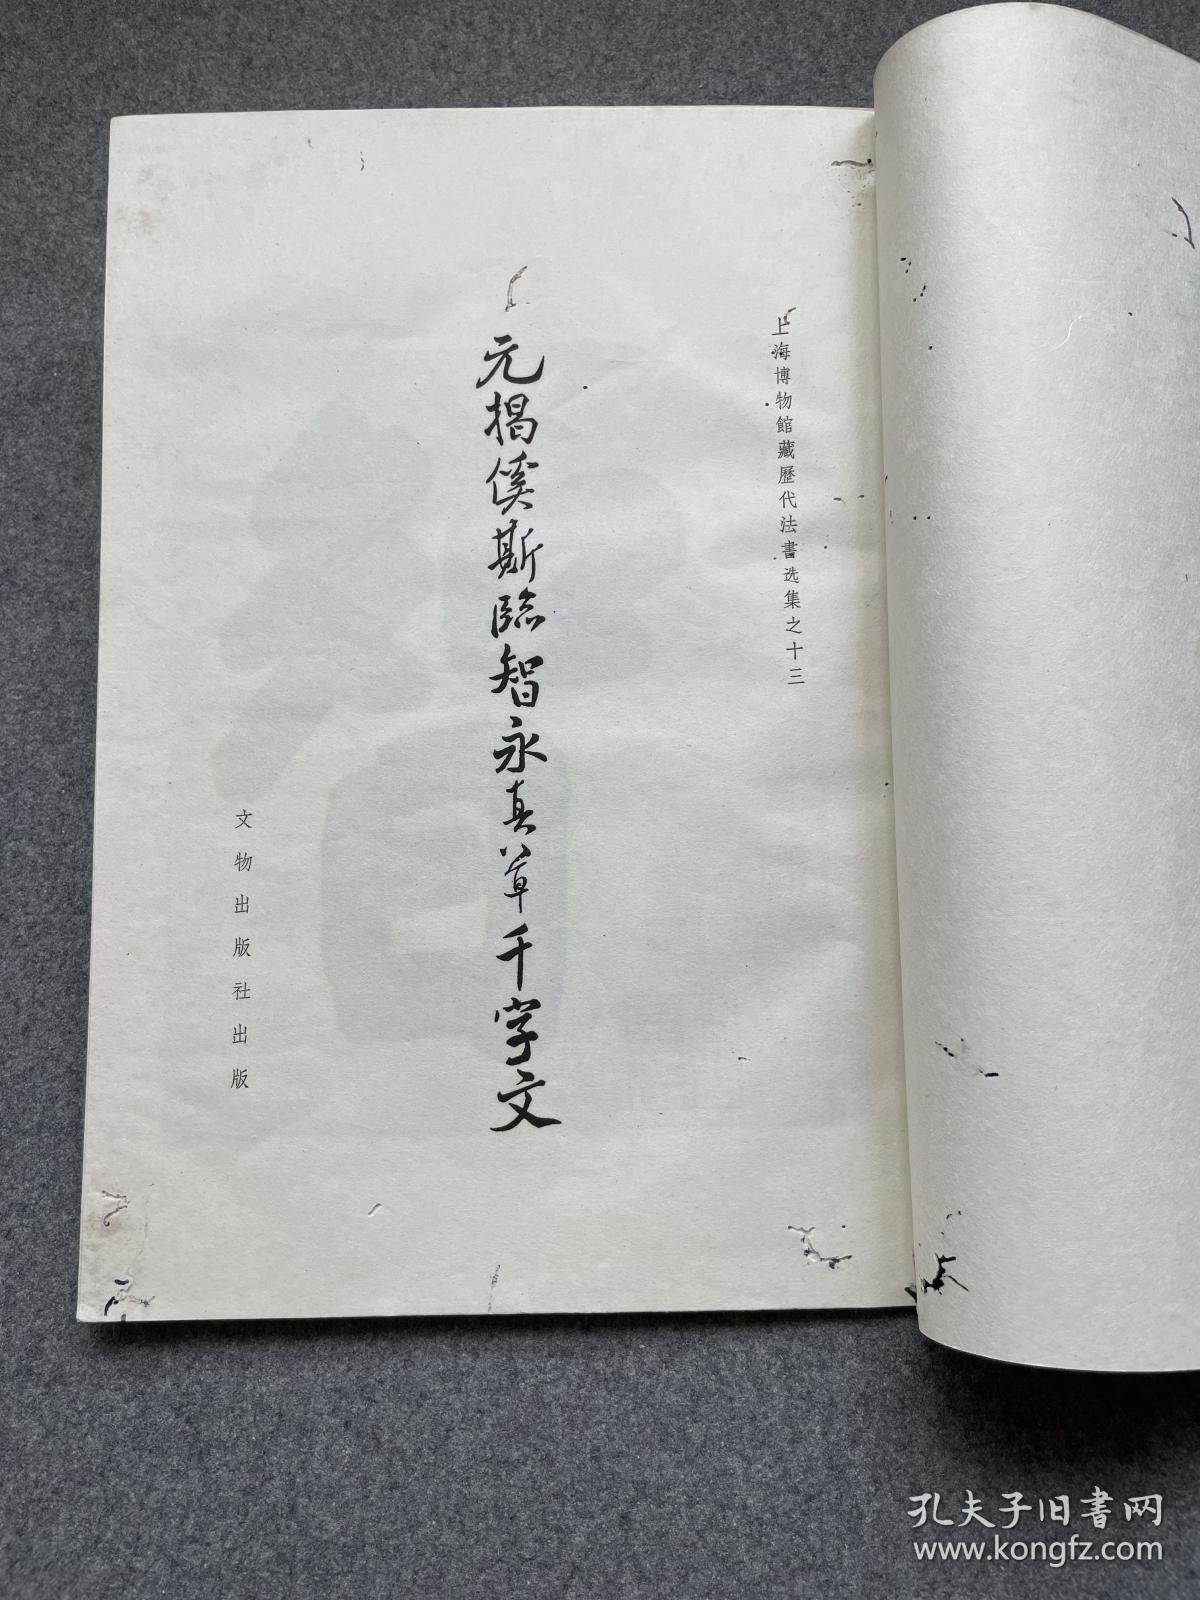 上海博物館藏歷代法書选集之十三
元揭傒斯臨智永真草千字文
文物出版社出版
孔夫子旧書网
www.kongfz.com